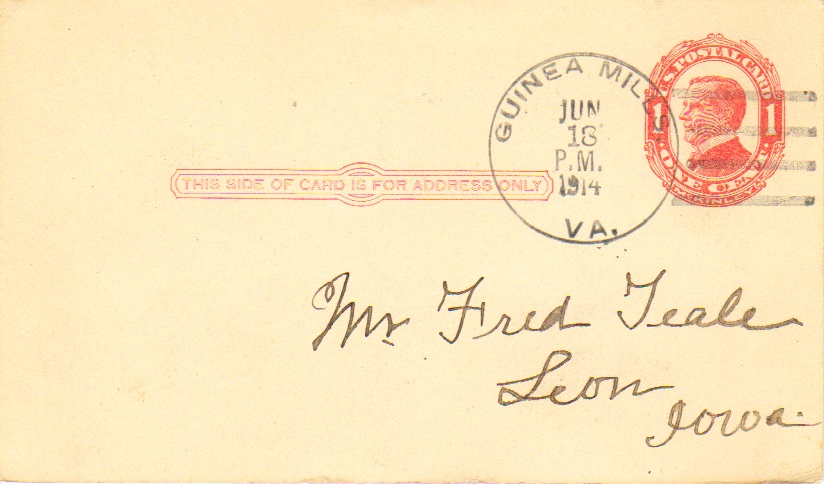 GUINEA MILLS
JUN
18
P.M.
1914
VA.
U.S. POSTAL CARD
1 1
ONE CENT
McKINLEY
THIS SIDE OF CARD IS FOR ADDRESS ONLY
Mr Fred Teale
Leon
Iowa.